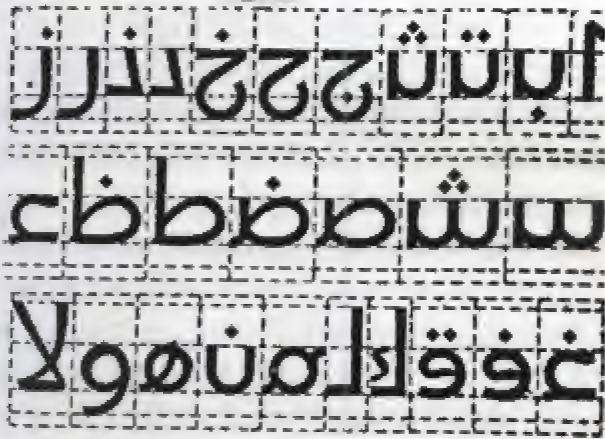 أ ب ت ث ج ح خ د ذ ر ز
س ش ص ض ط ظ ع
غ ف ق ك ل م ن ه و لا